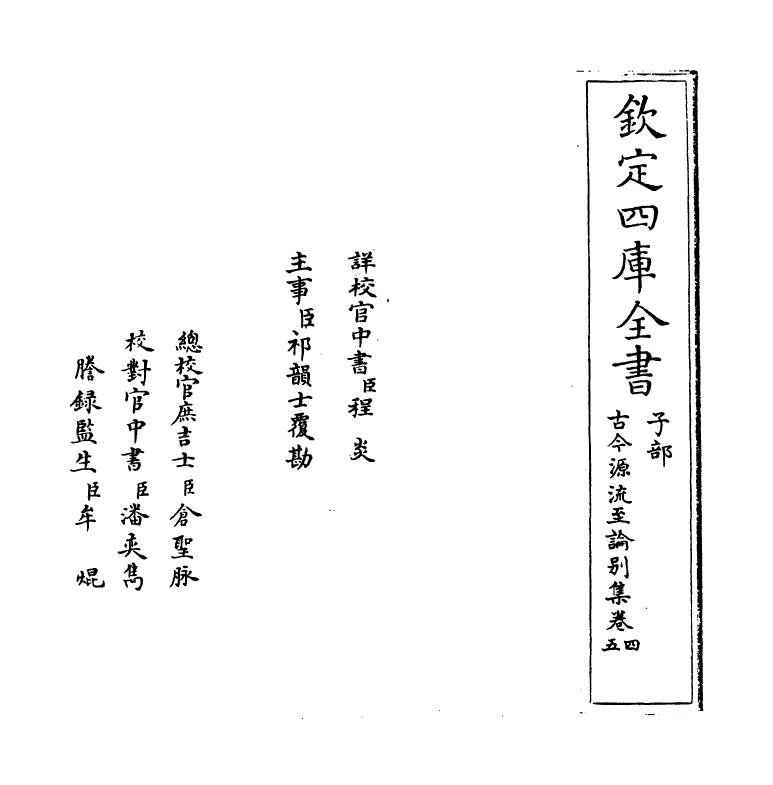 欽定四庫全書
子部
古今源流至論别集卷四五
詳校官中書臣程炎
主事臣祁韻士覆勘
總校官庶吉士臣倉聖脉
校對官中書臣潘奕雋
謄録監生臣牟焜